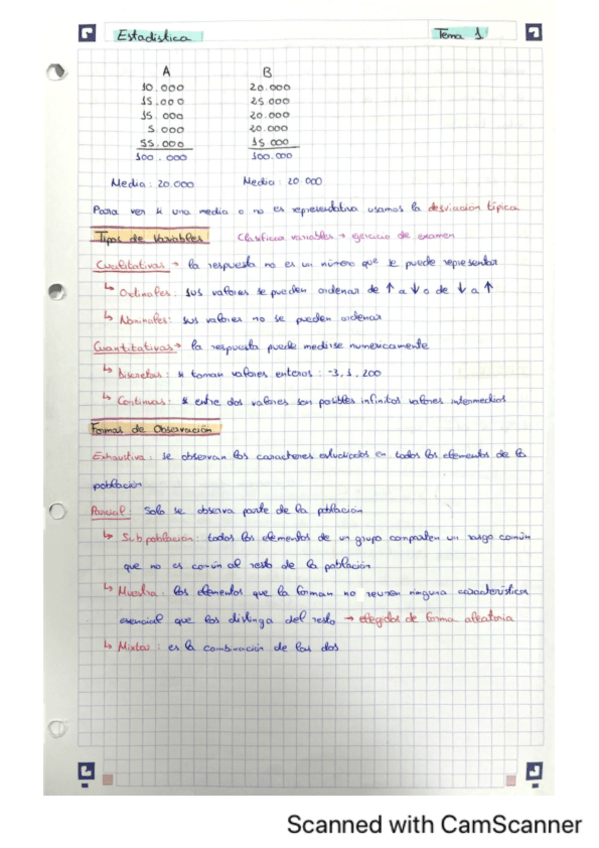 Estadística Tema 1
A B
10.000 20.000
15.000 25.000
15.000 20.000
5.000 20.000
55.000 15.000
100.000 100.000
Media: 20.000 Media: 20.000
Para ver si una media o no es representativa usamos la desviación típica
Tipos de Variables Clasificar variables → ejercicio de examen
Cualitativas → la respuesta no es un número que se puede representar
↳ Ordinales: sus valores se pueden ordenar de ↑ a ↓ o de ↓ a ↑
↳ Nominales: sus valores no se pueden ordenar
Cuantitativas → la respuesta puede medirse numericamente
↳ Discretas: si toman valores enteros: -3, 1, 200
↳ Continuas: si entre dos valores son posibles infinitos valores intermedios
Formas de Observación
Exhaustiva: se observan los caracteres estudiados en todos los elementos de la
población
Parcial: Solo se observa parte de la población
↳ Subpoblación: todos los elementos de un grupo comparten un rasgo común
que no es común al resto de la población
↳ Muestra: los elementos que la forman no reunen ninguna característica
esencial que los distinga del resto → elegidos de forma aleatoria
↳ Mixtas: es la combinación de las dos
Scanned with CamScanner